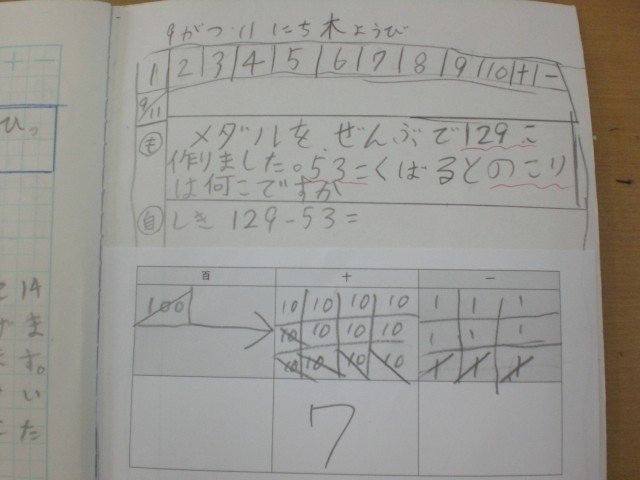 9がつ11にち木ようび
1 2 3 4 5 6 7 8 9 10 + -
9/11
も メダルをぜんぶで129こ
作りました。53こくばるとのこり
は何こですか
自 しき 129-53=
百 十 一
100 10 10 10 10 1 1 1
10 10 10 10 1 1 1
10 10 10 10 1 1 1
7
+ -
ひっ
14
ま
す。
い
た